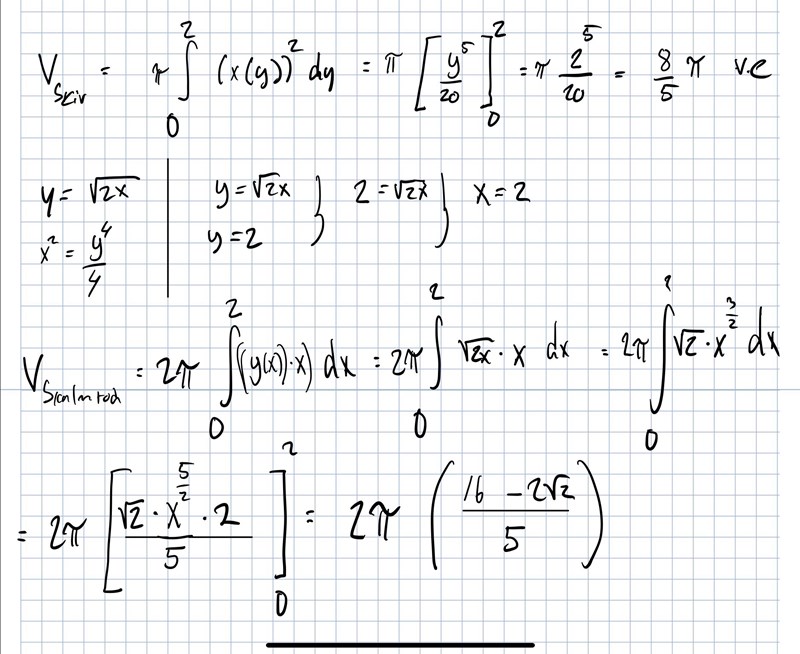 V_Skiv = π ∫₀² (x(y))² dy = π [y⁵/20]₀² = π 2⁵/20 = 8/5 π v.e
y = √2x | y = √2x } 2 = √2x } x = 2
x² = y⁴/4 | y = 2
= 2π ∫₀² ((y(x))·x) dx = 2π ∫₀² √2x · x dx = 2π ∫₀ √2 · x^(3/2) dx
= 2π [√2 · x^(5/2) · 2 / 5]₀² = 2π ((16 - 2√2)/5)